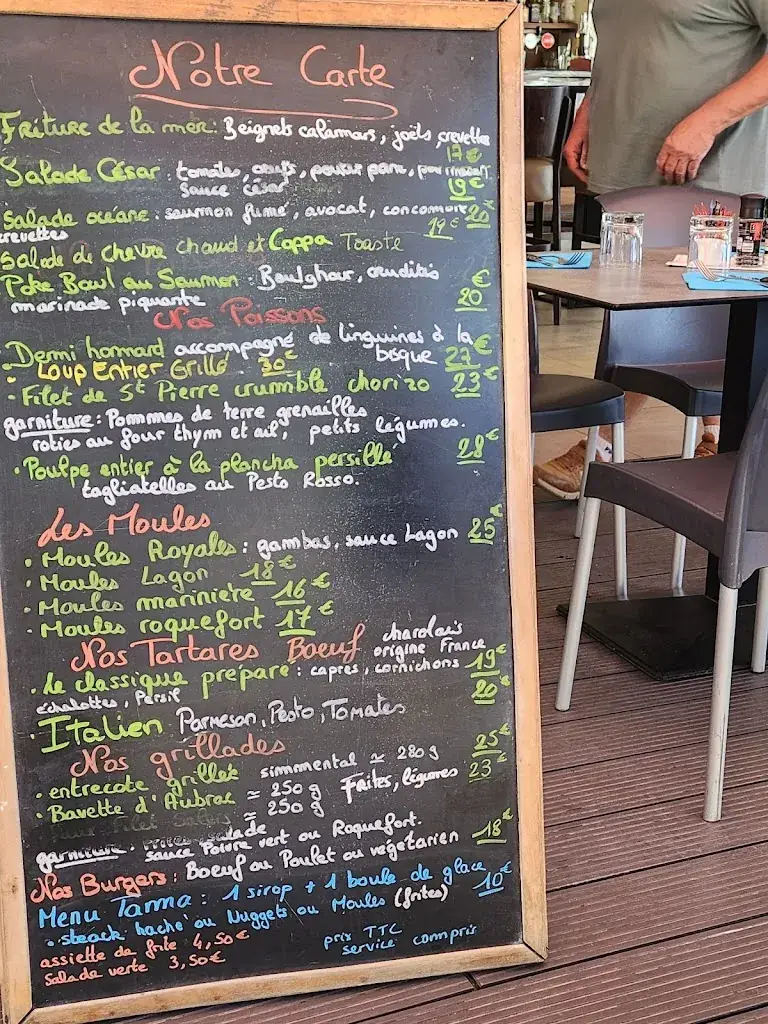 Notre Carte
Friture de la mer: Beignets calamars, joëls, crevettes
17€
Salade César: tomates, œufs, poulet pané,
sauce césar 19€
Salade océane: saumon fumé, avocat, concombre 20€
crevettes 19€
Salade de chèvre chaud et Coppa Toasté
Poke Bowl au Saumon: Boulghour, crudités €
marinade piquante 20
Nos Poissons
Demi hommard accompagné de linguines à la
bisque 27€
Loup Entier Grillé 30€
Filet de St Pierre crumble chorizo 23€
garniture: Pommmes de terre grenailles
roties au four thym et ail, petits légumes.
Poulpe entier à la plancha persillé 28€
tagliatelles au Pesto Rosso.
Les Moules
Moules Royales: gambas, sauce Lagon 25€
Moules Lagon 18€
Moules marinière 16€
Moules roquefort 17€
Nos Tartares Boeuf charolais
origine France
Le classique préparé: capres, cornichons 19€
échalottes, Persil 20€
Italien Parmesan, Pesto, Tomates
Nos grillades
entrecote grillée simmmental ≃ 280g 25€
Bavette d'Aubrac ≃ 250g Frites, légumes 23€
≃ 250g
garniture: salade
sauce Poivre vert ou Roquefort.
Nos Burgers: Boeuf ou Poulet ou végétarien 18€
Menu Tamma: 1 sirop + 1 boule de glace
steack haché ou Nuggets ou Moules (frites) 10€
assiette de frite 4,50€
Salade verte 3,50€
prix TTC
service compris